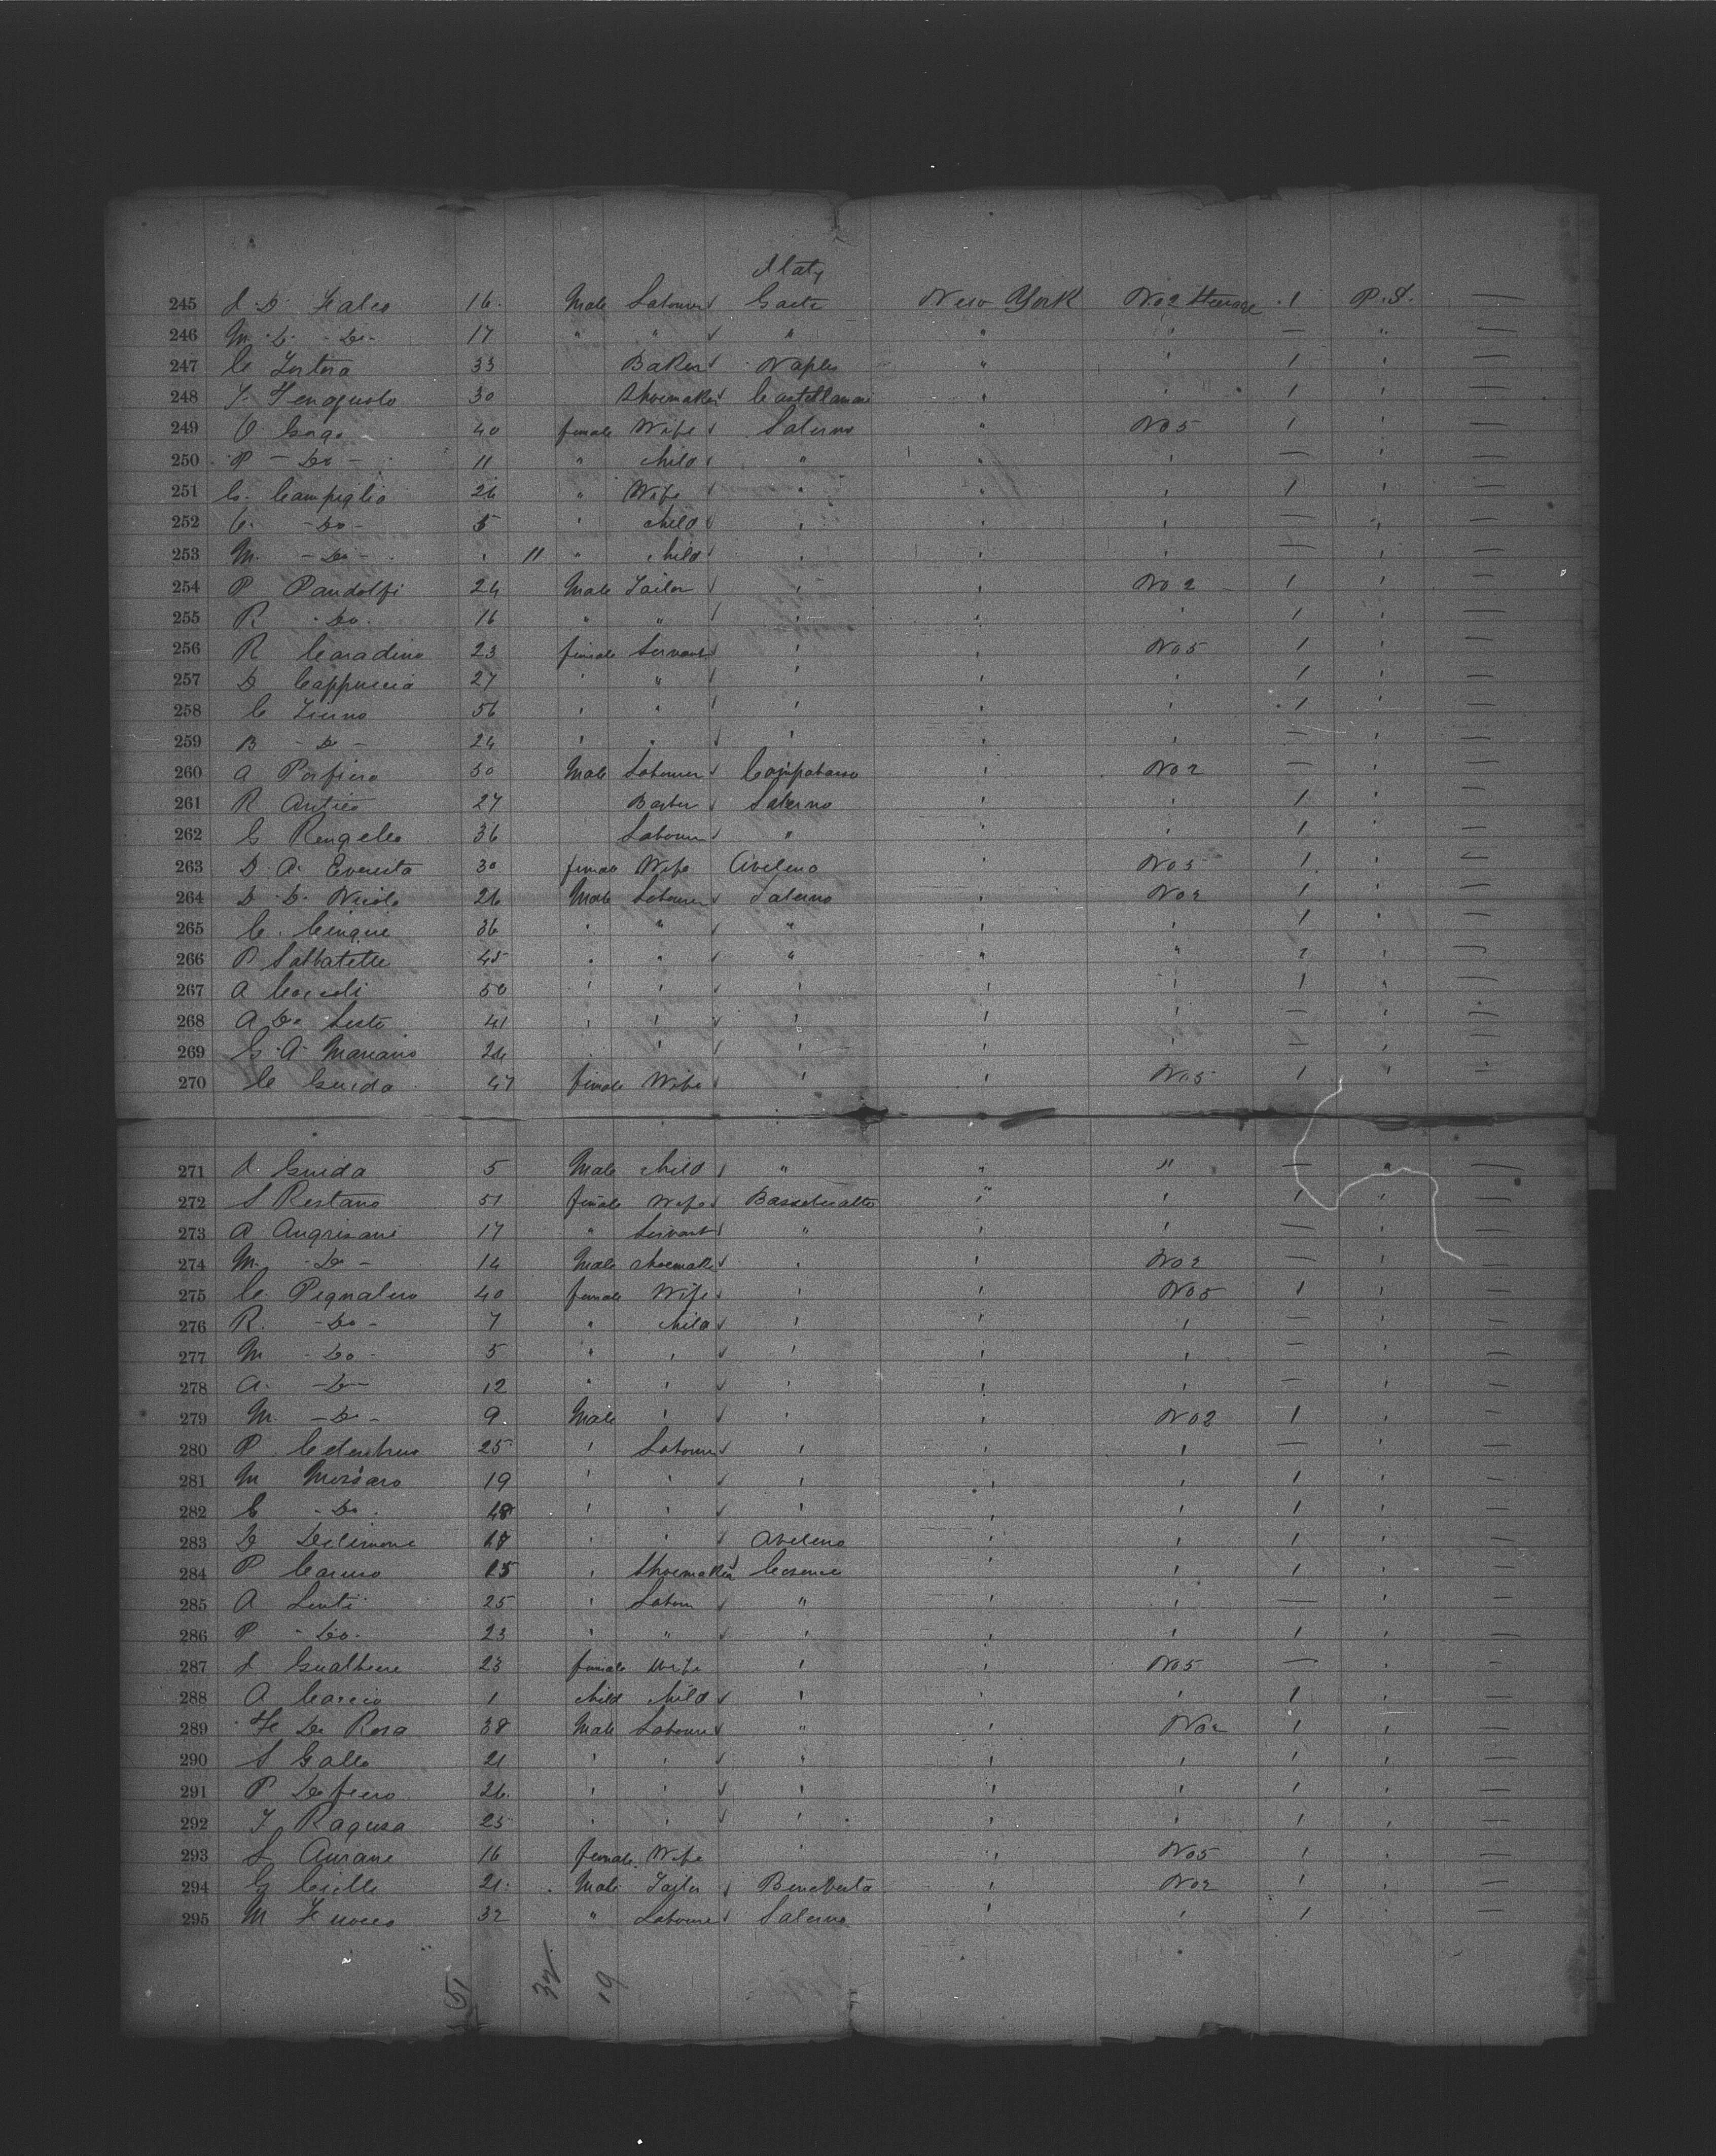 Italy
245 D. Falco 16 Male Labourer Gaeta New York No 2 Steerage 1 P.S. —
246 M. D. - Do - 17 " " " " " — " —
247 C Tortora 33 Baker Naples " " 1 " —
248 Shoemaker 30 Castellamare " " 1 " —
249 O Gogo 40 female Wife Salerno " No 5 1 " —
250 P - Do - 11 " Child " " " — " —
251 G. Campiglio 26 " Wife " " " 1 " —
252 C. - Do - 5 " Child " " " — " —
253 M. - Do - " 11 " Child " " " — " —
254 P Pandolfi 24 Male Tailor " " No 2 1 " —
255 R - Do - 16 " " " " " 1 " —
256 R Caradino 23 female Servant " " No 5 1 " —
257 D Cappuccio 27 " " " " " 1 " —
258 C 56 " " " " " 1 " —
259 B - Do - 24 " " " " " — " —
260 A Porfirio 50 Male Labourer Campobasso " No 2 — " —
261 R 27 Barber Salerno " " 1 " —
262 G 36 Labourer " " " 1 " —
263 D. A. 30 female Wife Avelino " No 5 1 " —
264 D. D. Nicola 26 Male Labourer Salerno " No 2 1 " —
265 C. Cinque 36 " " " " " 1 " —
266 P Sabbatelli 45 " " " " " 1 " —
267 A 50 " " " " " 1 " —
268 A De Sesto 41 " " " " " — " —
269 G. A. Mariano 24 " " " " " — " —
270 C Guida 47 female Wife " " No 5 1 " —
271 Guida 5 Male Child " " " — " —
272 S Restano 51 female Wife " " 1 " —
273 A Angrisani 17 " Servant " " " — " —
274 M. - Do - 14 Male Shoemaker " " No 2 — " —
275 C. Pignataro 40 female Wife " " No 5 1 " —
276 R. - Do - 7 " Child " " " — " —
277 M - Do - 5 " " " " " — " —
278 A. - Do - 12 " " " " " — " —
279 M. - Do - 9 Male " " " No 2 1 " —
280 P. 25 " Labourer " " " — " —
281 M 19 " " " " " 1 " —
282 - Do - 18 " " " " " 1 " —
283 D 17 " " Avelino " " 1 " —
284 P Caruso 15 " Shoemaker Cosence " " 1 " —
285 A Lenti 25 " Labour " " " — " —
286 P - Do - 23 " " " " " 1 " —
287 Gualtiere 23 female Wife " " No 5 — " —
288 A 1 Child Child " " " 1 " —
289 De Rosa 38 Male Labourer " " No 2 1 " —
290 S Gallo 21 " " " " " 1 " —
291 P 26 " " " " " 1 " —
292 Ragusa 25 " " " " " 1 " —
293 16 female Wife " " No 5 1 " —
294 G 21 Male Tailor Beneventa " No 2 1 " —
295 M Fuoco 32 " Labourer Salerno " " 1 —
51 32 19